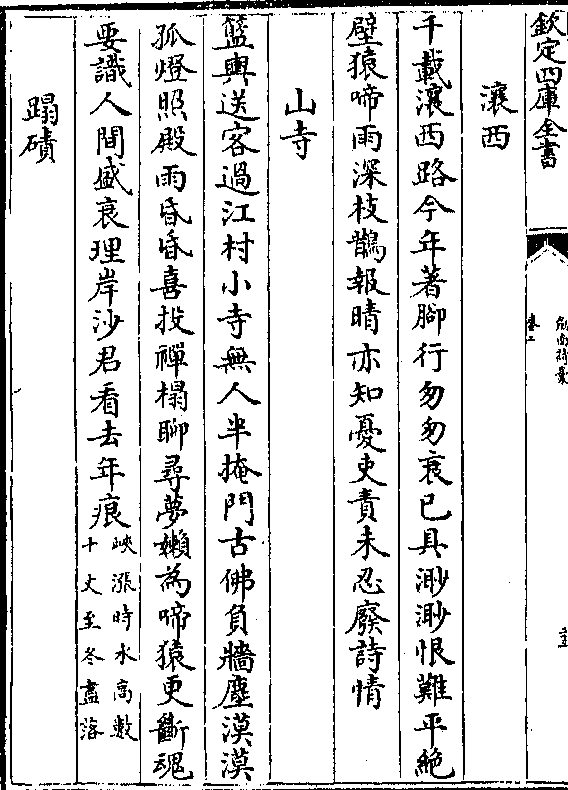 欽定四庫全書
劍南詩稾
卷二
瀼西
千載瀼西路今年著腳行匆匆衰已具渺渺恨難平絶
壁猿啼雨深枝鵲報晴亦知憂吏責未忍廢詩情
山寺
籃輿送客過江村小寺無人半掩門古佛負牆塵漠漠
孤燈照殿雨昏昏喜投禪榻聊尋夢嬾為啼猿更斷魂
要識人間盛衰理岸沙君看去年痕峽漲時水高數
十丈至冬盡落
蹋磧